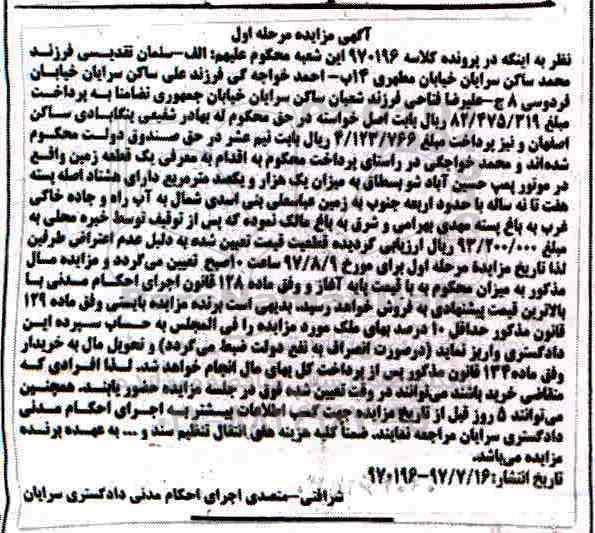 آگهی مزایده مرحله اول
نظر به اینکه در پرونده کلاسه ۹۷۰۱۹۶ این شعبه محکوم علیهم: الف-سلمان تقدیسی فرزند
محمد ساکن سرایان خیابان مطهری ۱۴ب- احمد خواجه گی فرزند علی ساکن سرایان خیابان
فردوسی ۸ ج-علیرضا فتاحی فرزند شعبان ساکن سرایان خیابان جمهوری تضامنا به پرداخت
مبلغ ۸۲/۴۷۵/۳۱۹ ریال بابت اصل خواسته در حق محکوم له بهادر شفیعی پنگابادی ساکن
اصفهان و نیز پرداخت مبلغ ۴/۱۲۳/۷۶۶ ریال بابت نیم عشر در حق صندوق دولت محکوم
شده‌اند و محمد خواجگی در راستای پرداخت محکوم به اقدام به معرفی یک قطعه زمین واقع
در موتور پمپ حسین آباد شوسطاق به میزان یک هزار و یکصد مترمربع دارای هشتاد اصله پسته
هفت تا نه ساله با حدود اربعه جنوب به زمین عباسعلی بنی اسدی شمال به آب راه و جاده خاکی
غرب به باغ پسته مهدی بهرامی و شرق به باغ مالک نموده که پس از توقیف توسط خبره محلی به
مبلغ ۹۳/۲۰۰/۰۰۰ ریال ارزیابی گردیده قطعیت قیمت تعیین شده به دلیل عدم اعتراض طرفین
لذا تاریخ مزایدهٔ مرحله اول برای مورخ ۹۷/۸/۹ ساعت ۱۰صبح تعیین می‌گردد و مزایده مال
مذکور به میزان محکوم به با قیمت پایه آغاز و وفق ماده ۱۲۸ قانون اجرای احکام مدنی با
بالاترین قیمت پیشنهادی به فروش خواهد رسید. بدیهی است برنده مزایده بایستی وفق ماده ۱۲۹
قانون مذکور حداقل ۱۰ درصد بهای ملک مورد مزایده را فی المجلس به حساب سپرده این
دادگستری واریز نماید (درصورت انصراف به نفع دولت ضبط می‌گردد) و تحویل مال به خریدار
وفق ماده۱۳۴ قانون مذکور پس از پرداخت کل بهای مال انجام خواهد شد. لذا افرادی که
متقاضی خرید باشند می‌توانند در وقت تعیین شده فوق در جلسه مزایده حضور یابند. همچنین
می‌توانند ۵ روز قبل از تاریخ مزایده جهت کسب اطلاعات بیشتر به اجرای احکام مدنی
دادگستری سرایان مراجعه نمایند. ضمناً کلیه هزینه های انتقال تنظیم سند و ... به عهده برنده
مزایده می‌باشد.
تاریخ انتشار: ۹۷/۷/۱۶-۹۷۰۱۹۶
شرافتی-متصدی اجرای احکام مدنی دادگستری سرایان